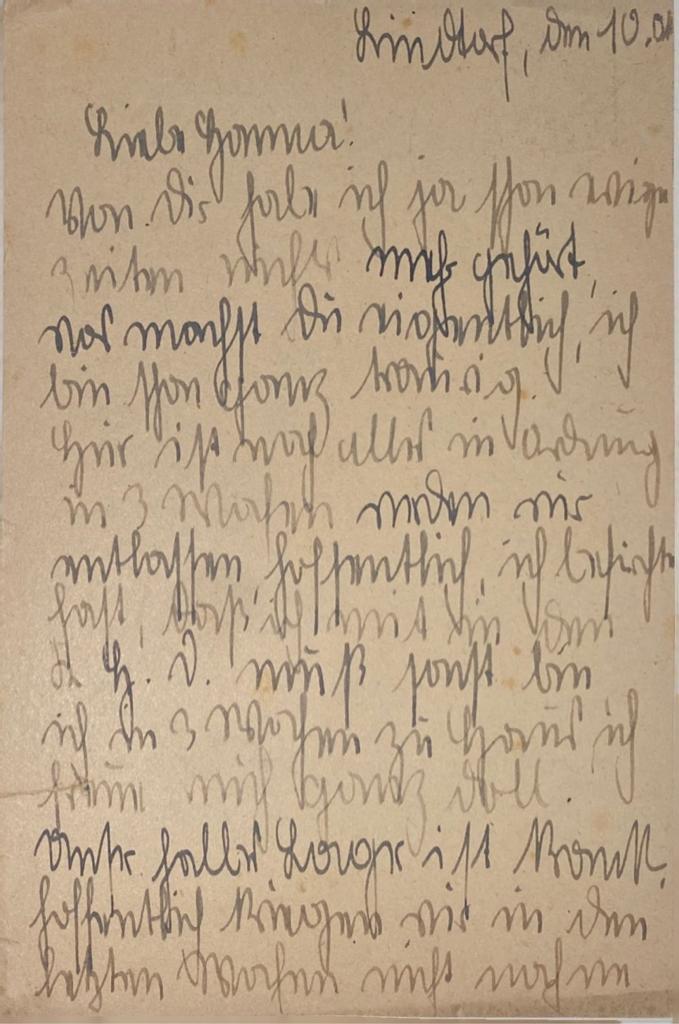 Lindtorf, den 10.
Liebe Hanna!
Von Dir habe ich ja schon ewige
Zeiten nichts mehr gehört,
was machst Du eigentlich, ich
bin schon ganz traurig.
Hier ist noch alles in Ordnung
in 3 Wochen werden wir
entlassen, hoffentlich, ich befürchte
fast, daß ich mit in den
K. H. D. muß sonst bin
ich in 3 Wochen zu Haus ich
freue mich ganz doll.
Unser halbes Lager ist krank,
hoffentlich kriegen wir in den
letzten Wochen nicht noch ne